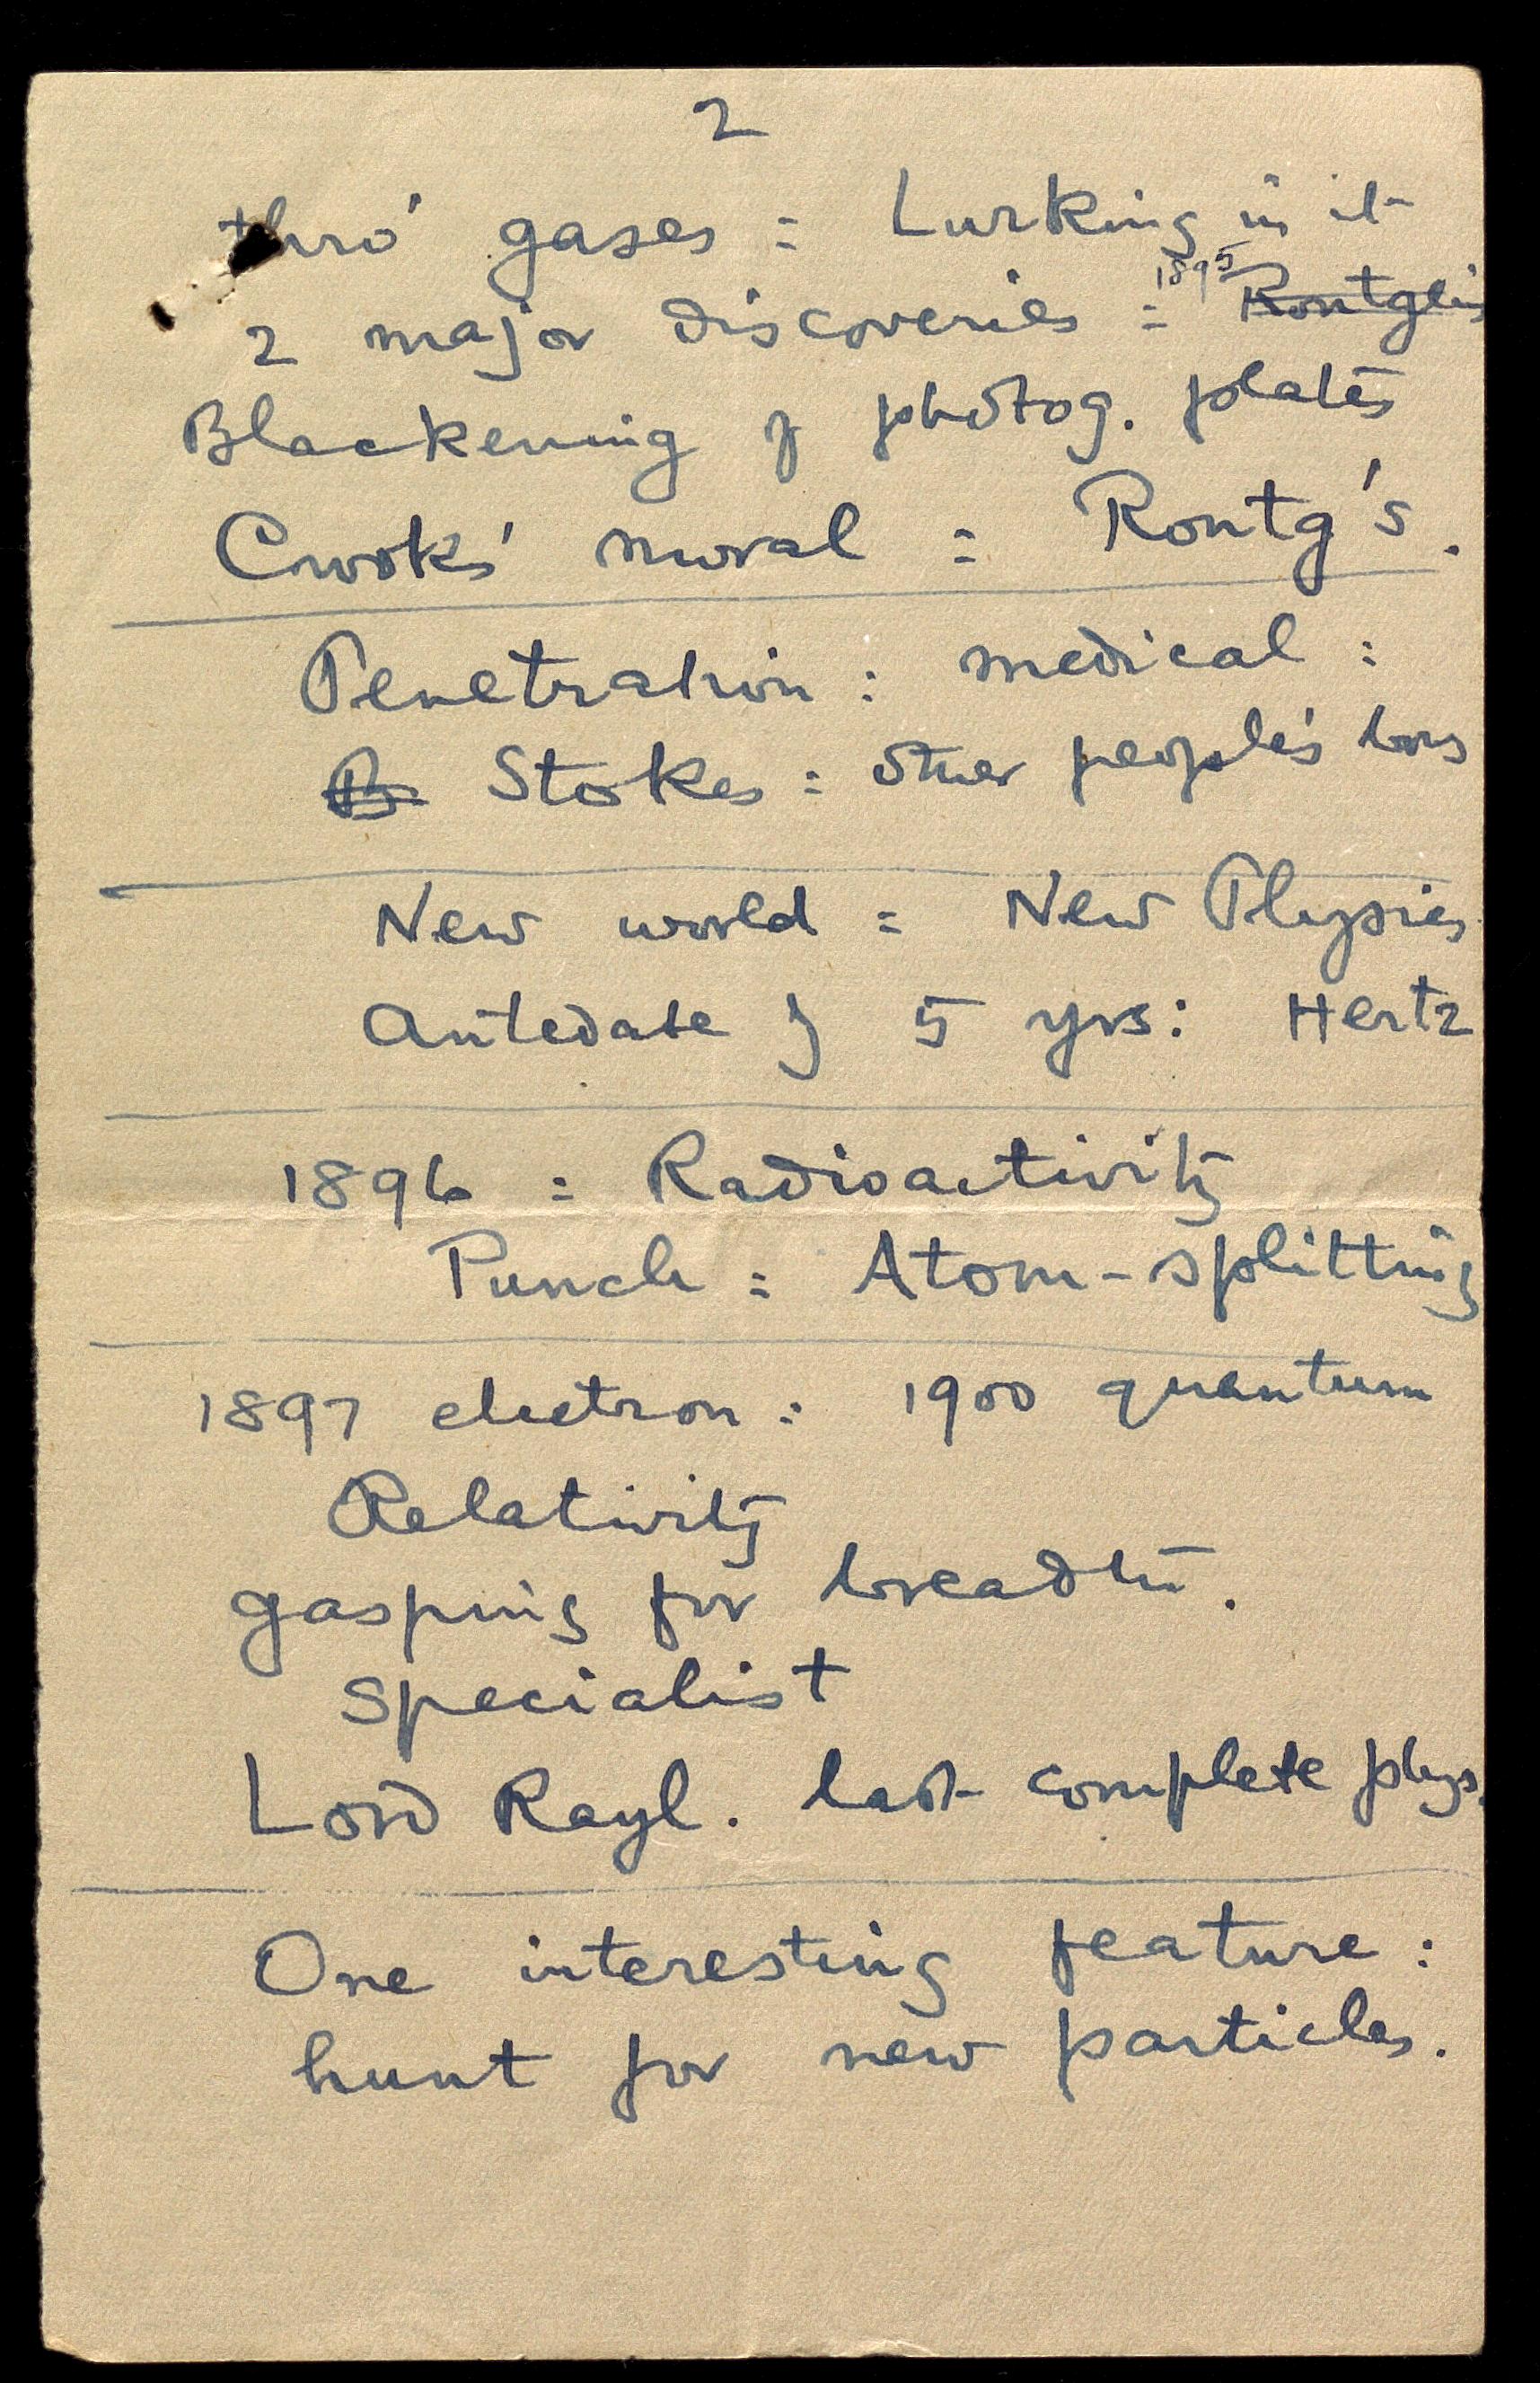 2
thro' gases : Lurking in it
2 major discoveries : 1895 Rontgen's
Blackening of photog. plates
Crook's moral : Rontg's.
Penetration : medical :
B Stokes : other people's
New world : New Physics
Antedate of 5 yrs : Hertz
1896 : Radioactivity
Punch : Atom-splitting
1897 electron : 1900 quantum
Relativity
gasping for breadth.
specialist
Lord Rayl. last complete phys.
One interesting feature :
hunt for new particles.